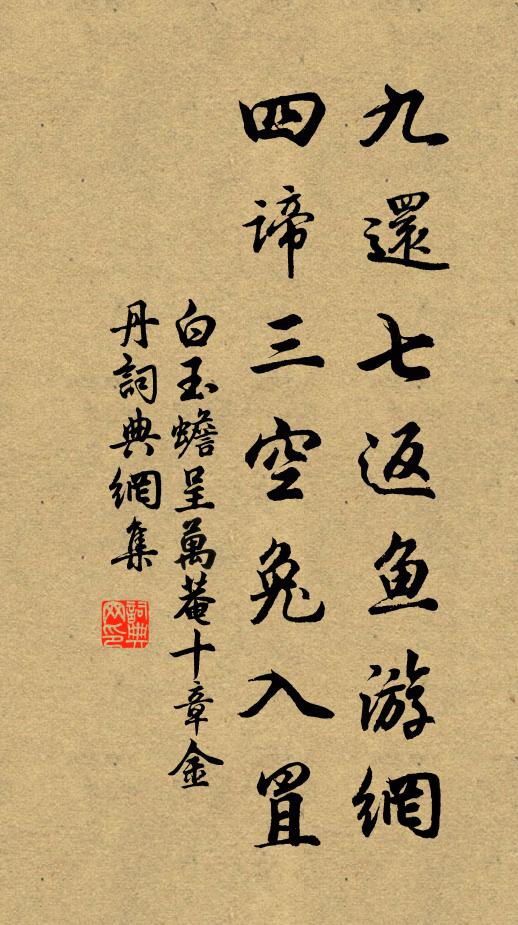 九還七返魚游網
四諦三空兔入罝
白玉蟾呈萬菴十章金
丹詞典網集
詞典网印